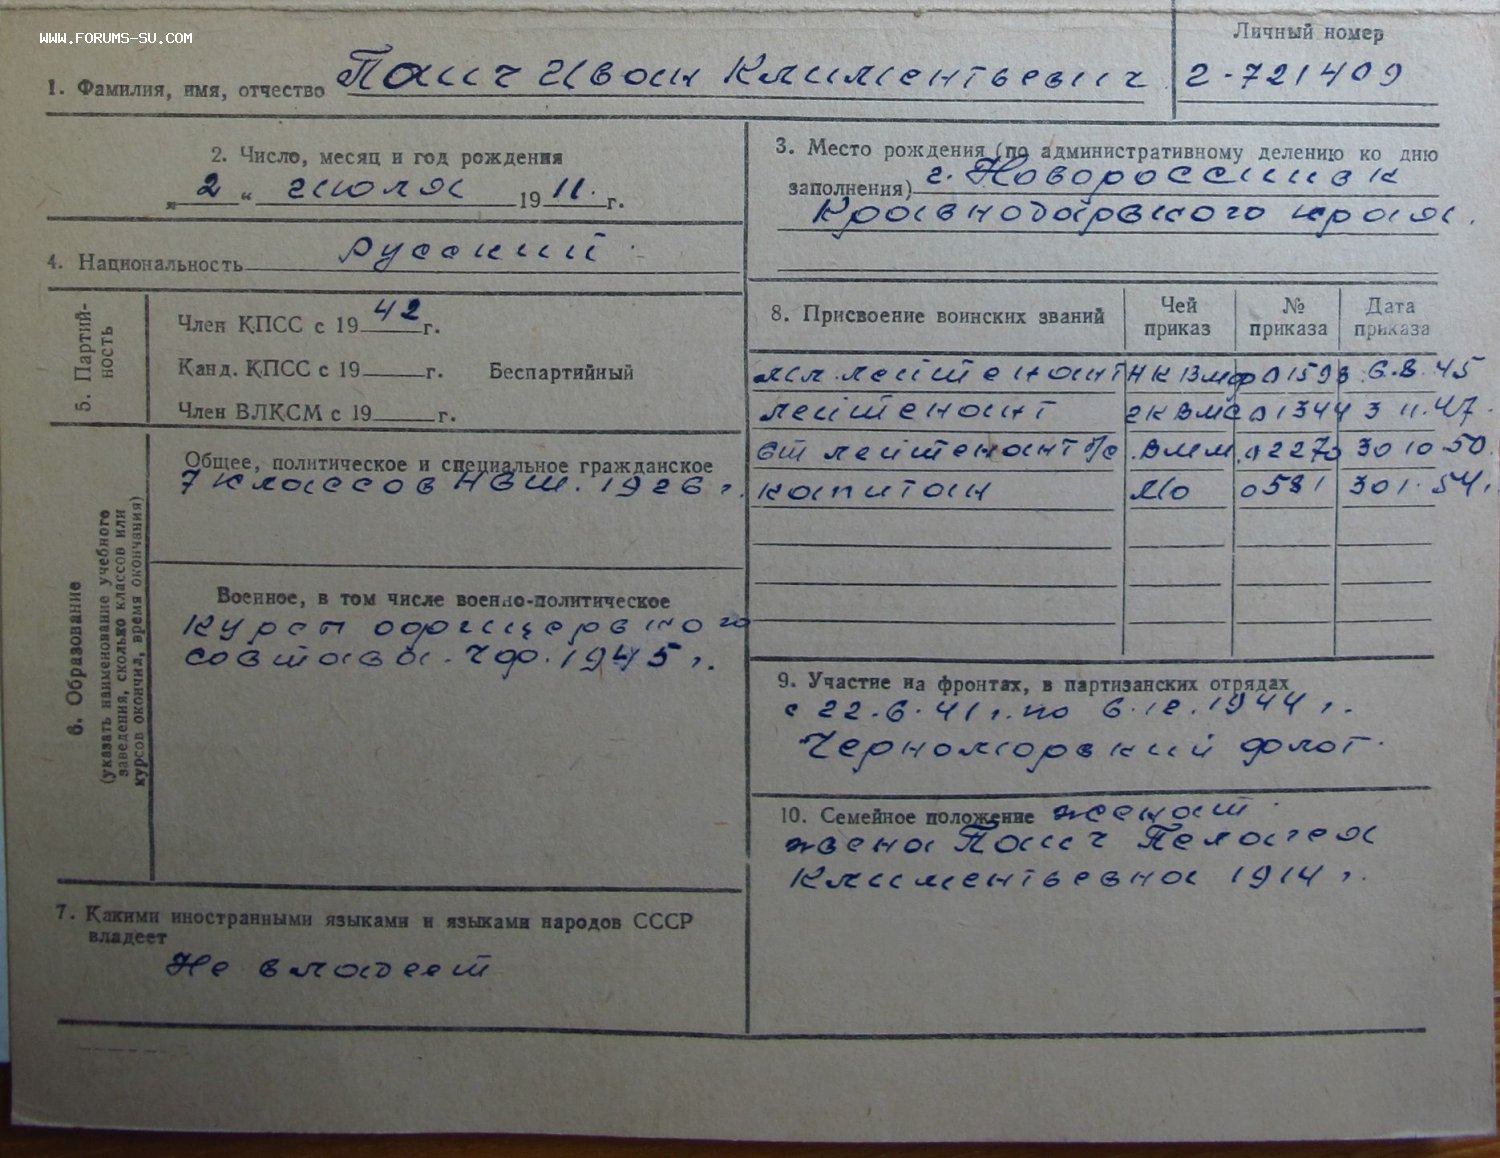 WWW.FORUMS-SU.COM
Личный номер
1. Фамилия, имя, отчество Паич Иван Климентьевич
2-721409
2. Число, месяц и год рождения
„ 2 “ июля 19 11. г.
3. Место рождения (по административному делению ко дню
заполнения) г. Новороссийск
Краснодарского края.
4. Национальность русский
5. Партий-
ность
Член КПСС с 19 42 г.
Канд. КПСС с 19 г. Беспартийный
Член ВЛКСМ с 19 г.
6. Образование
(указать наименование учебного
заведения, сколько классов или
курсов окончил, время окончания)
Общее, политическое и специальное гражданское
7 классов НСШ. 1926 г.
Военное, в том числе военно-политическое
Курсы офицерского
состава. ЧФ. 1945 г.
7. Какими иностранными языками и языками народов СССР
владеет
Не владеет
8. Присвоение воинских званий
Чей
приказ
№
приказа
Дата
приказа
мл. лейтенант НКВМФ 01593 6.8.45
лейтенант ГКВМС 01344 3 11.47.
ст лейтенант а/с ВММ 02270 30 10 50.
капитан МО 0581 30 1. 54 г.
9. Участие на фронтах, в партизанских отрядах
с 22.6.41 г. по 6.12.1944 г.
Черноморский флот.
10. Семейное положение женат.
жена Паич Пелагея
Климентьевна 1914 г.